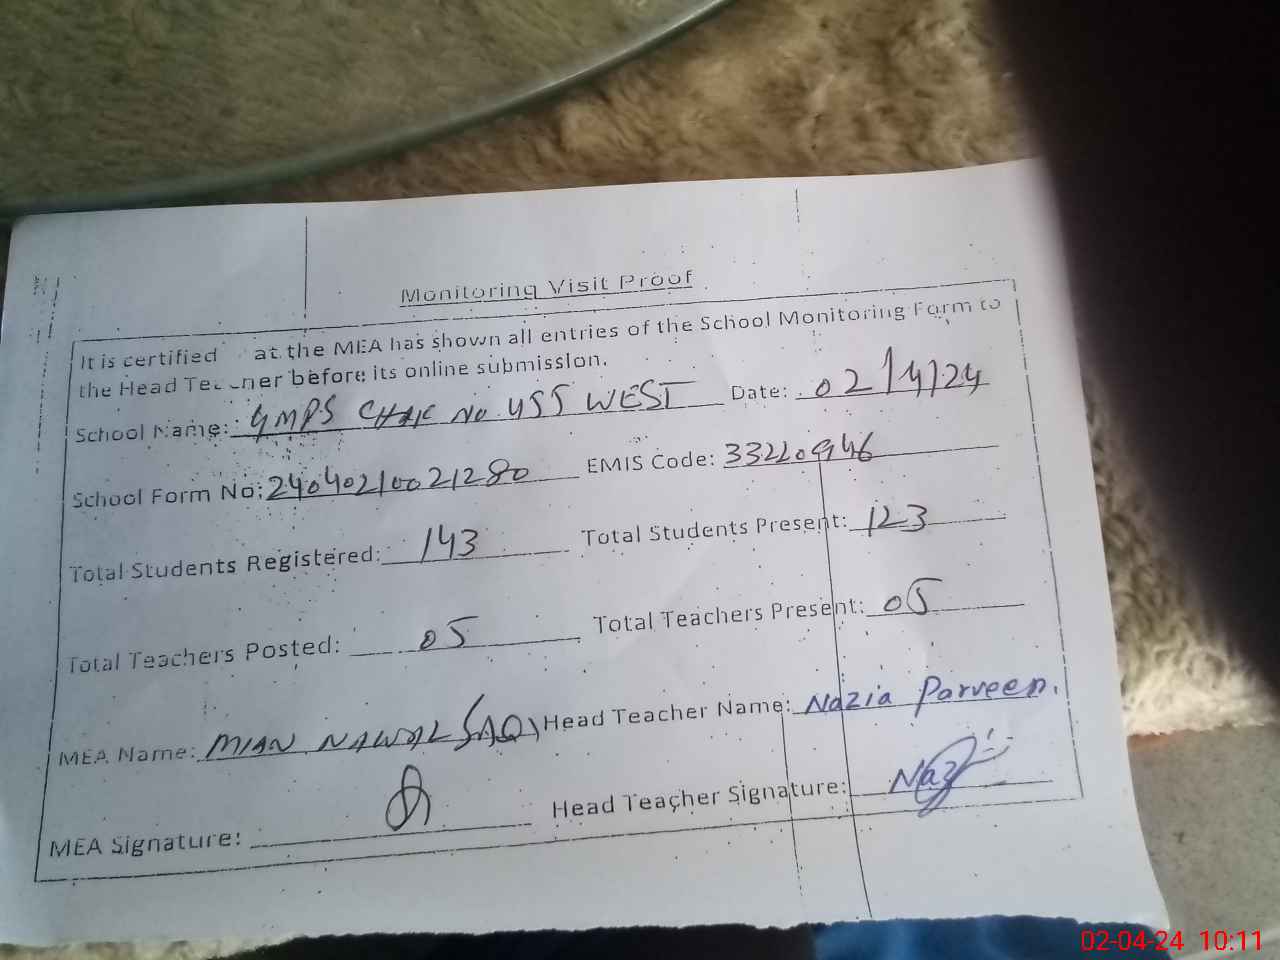 Monitoring Visit Proof
It is certified at the MEA has shown all entries of the School Monitoring Form to
the Head Teacher before its online submission.
School Name: GMPS CHAK No 455 WEST Date: 02/4/24
School Form No: 24040210021280 EMIS Code: 33220946
Total Students Registered: 143 Total Students Present: 123
Total Teachers Posted: 05 Total Teachers Present: 05
MEA Name: MIAN NAWAL Head Teacher Name: Nazia Parveen.
MEA Signature: Head Teacher Signature: Naz
02-04-24 10:11